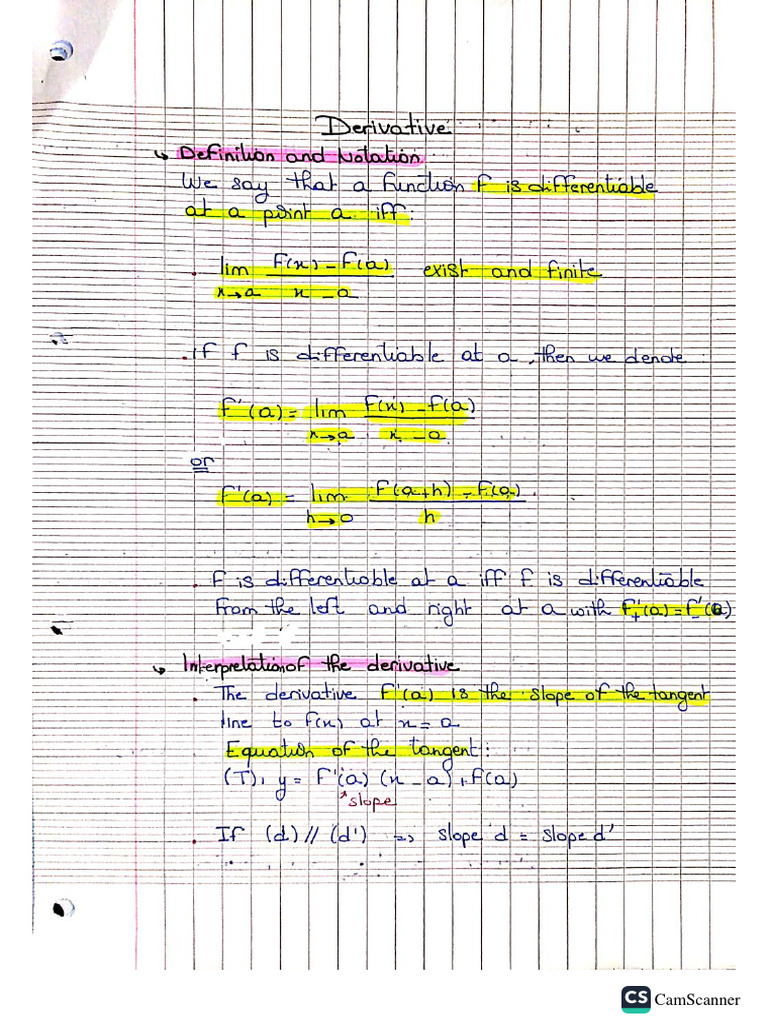 Derivative
↳ Definition and Notation
We say that a function f is differentiable
at a point a iff:
. lim f(x) - f(a) exist and finite
x→a x - a
. if f is differentiable at a, then we denote:
f'(a) = lim f(x) - f(a)
x→a x - a
or
f'(a) = lim f(a+h) - f(a).
h→0 h
. f is differentiable at a iff f is differentiable
from the left and right at a with f'₊(a) = f'₋(a)
↳ Interpretation of the derivative
. The derivative f'(a) is the slope of the tangent
line to f(x) at x = a
Equation of the tangent:
(T): y = f'(a) (x - a) + f(a)
slope
. If (d) // (d') => slope d = slope d'
CS CamScanner